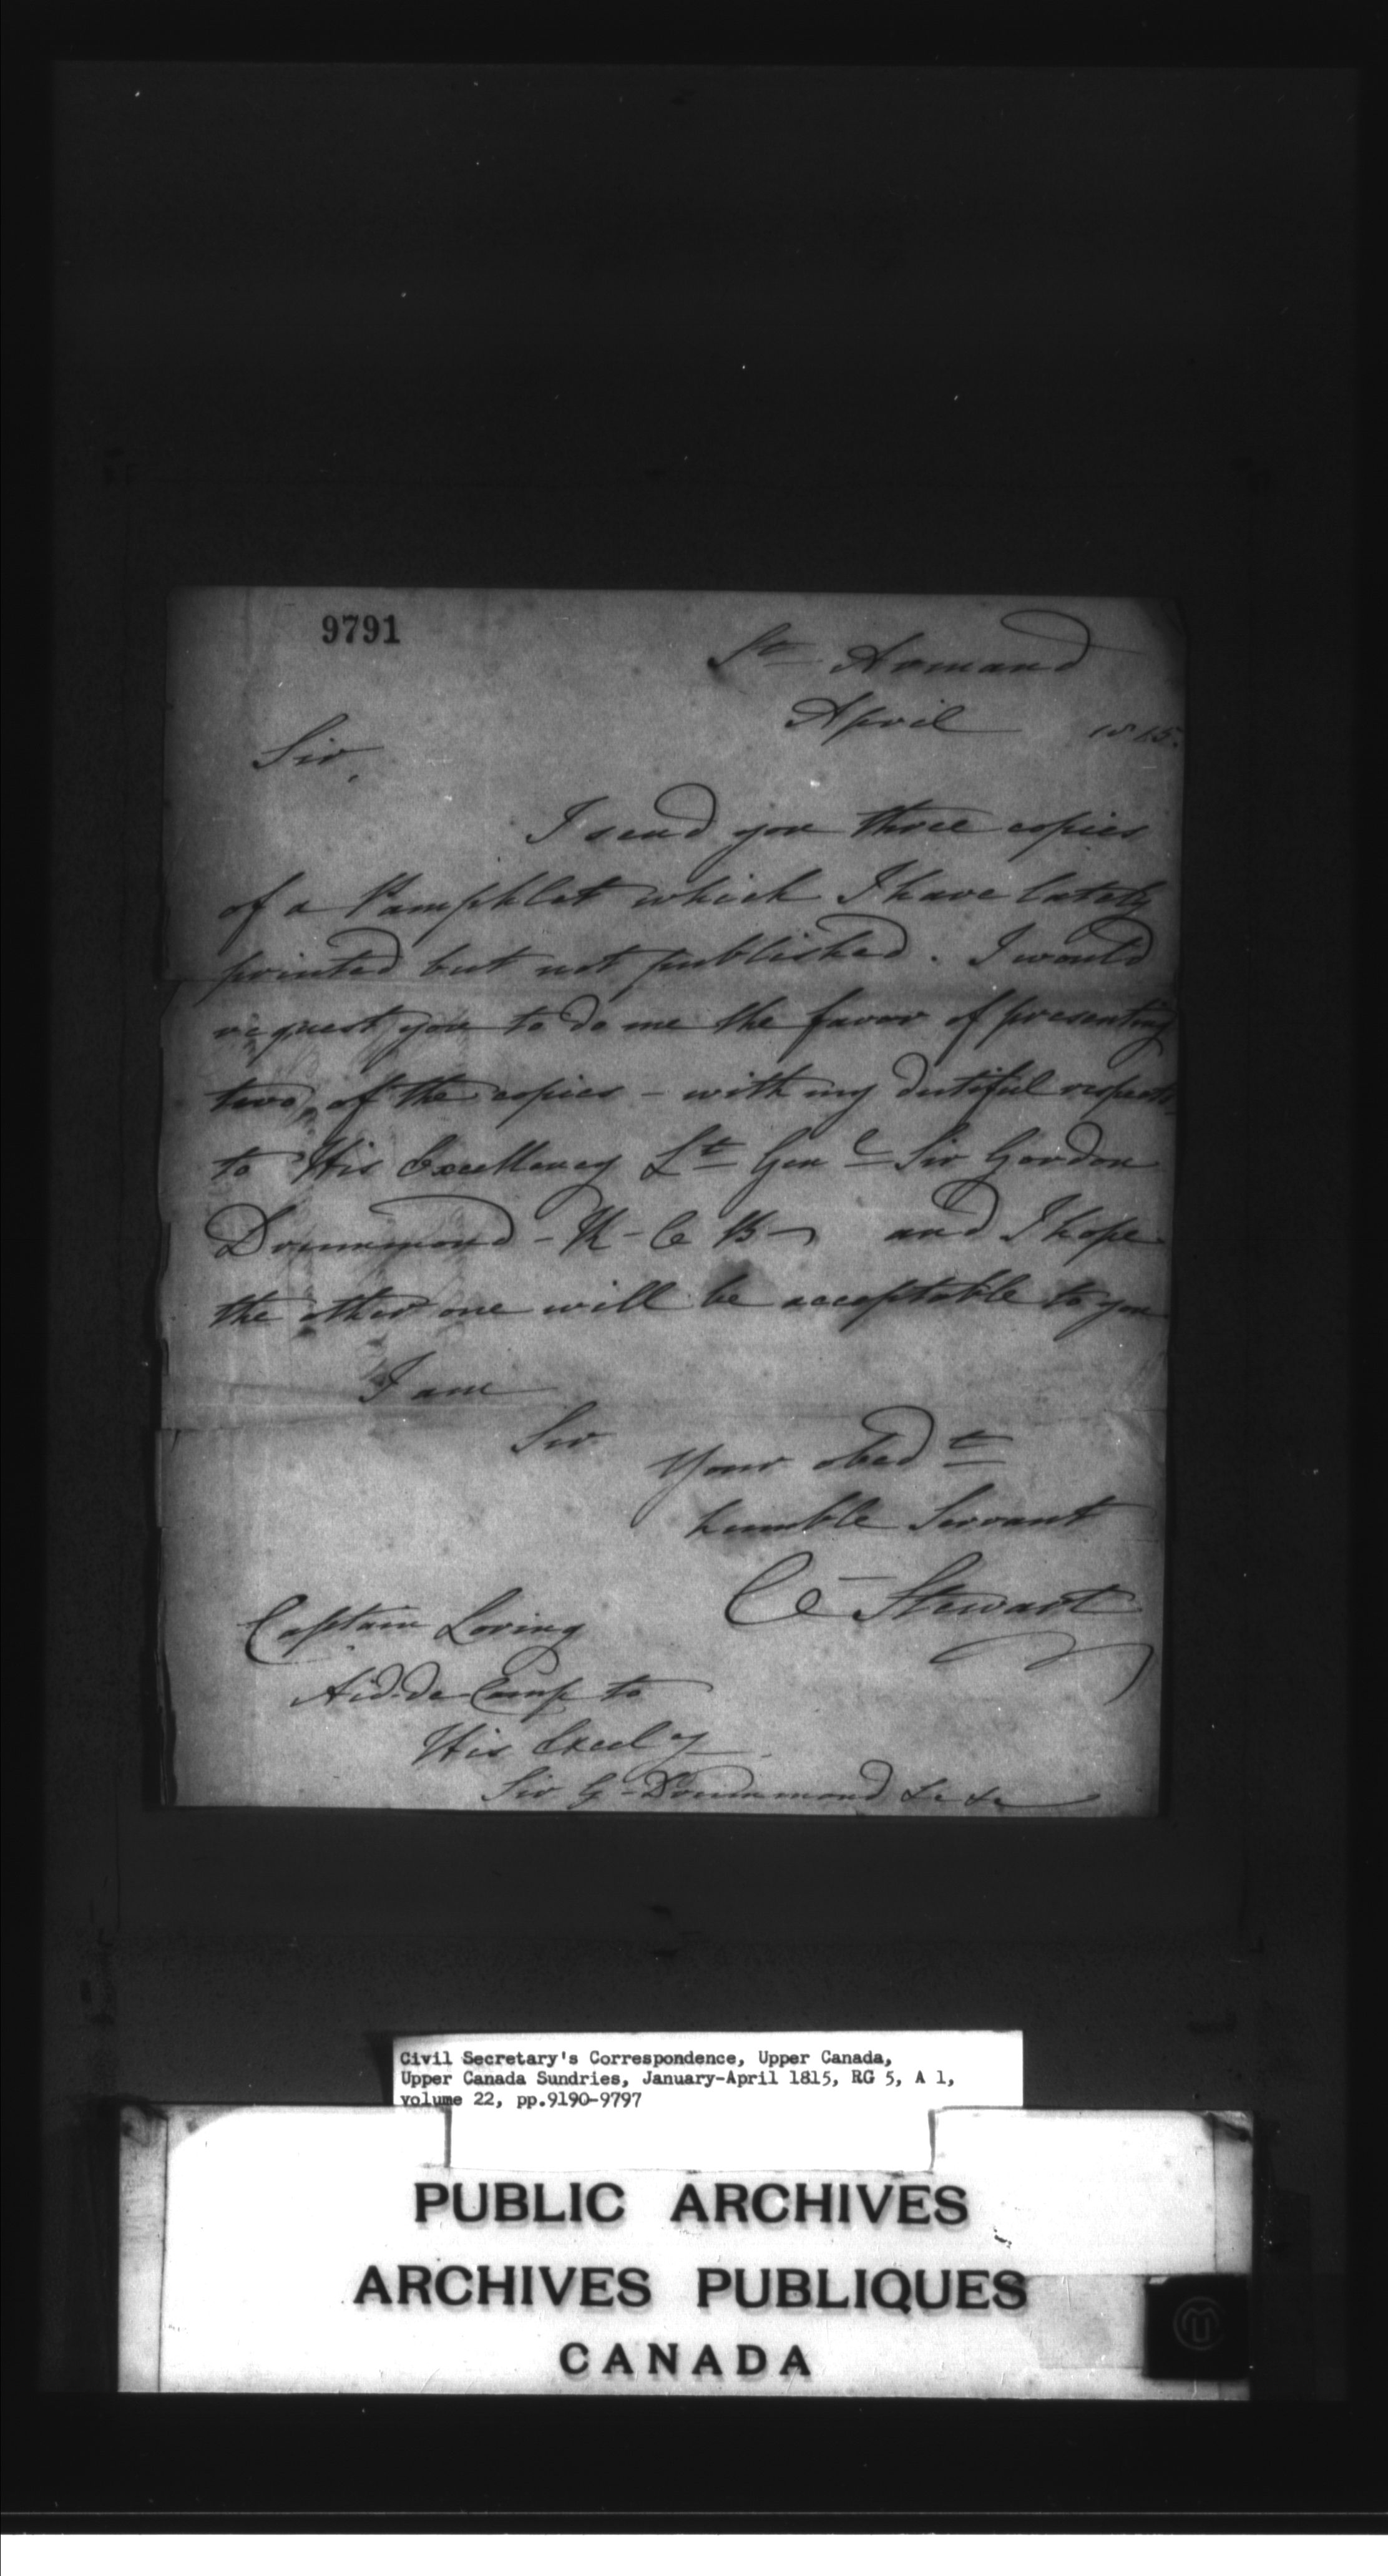 9791
St Armand
April 1815.
Sir,
I send you three copies
of a Pamphlet which I have lately
printed but not published. I would
request you to do me the favor of presenting
two, of the copies - with my dutiful respects
to His Excellency Lt Genl Sir Gordon
Drummond - K - C B - and I hope
the other one will be acceptable to you
I am
Sir
Your obedt
humble Servant
C Stewart
Captain Loring
Aid-de-Camp to
His Excely
Sir G - Drummond &c &c
Civil Secretary's Correspondence, Upper Canada,
Upper Canada Sundries, January-April 1815, RG 5, A 1,
volume 22, pp.9190-9797
PUBLIC ARCHIVES
ARCHIVES PUBLIQUES
CANADA